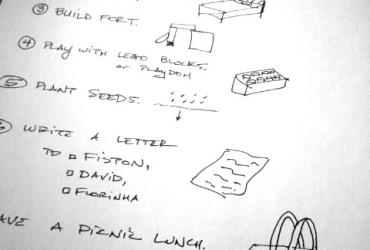 ③ BUILD FORT.
④ PLAY WITH LEGO BLOCKS.
OR PLAYDOH
⑤ PLANT SEEDS.
WRITE A LETTER
TO □ FISTON,
□ DAVID,
□ FLORINHA
A PICNIC LUNCH.